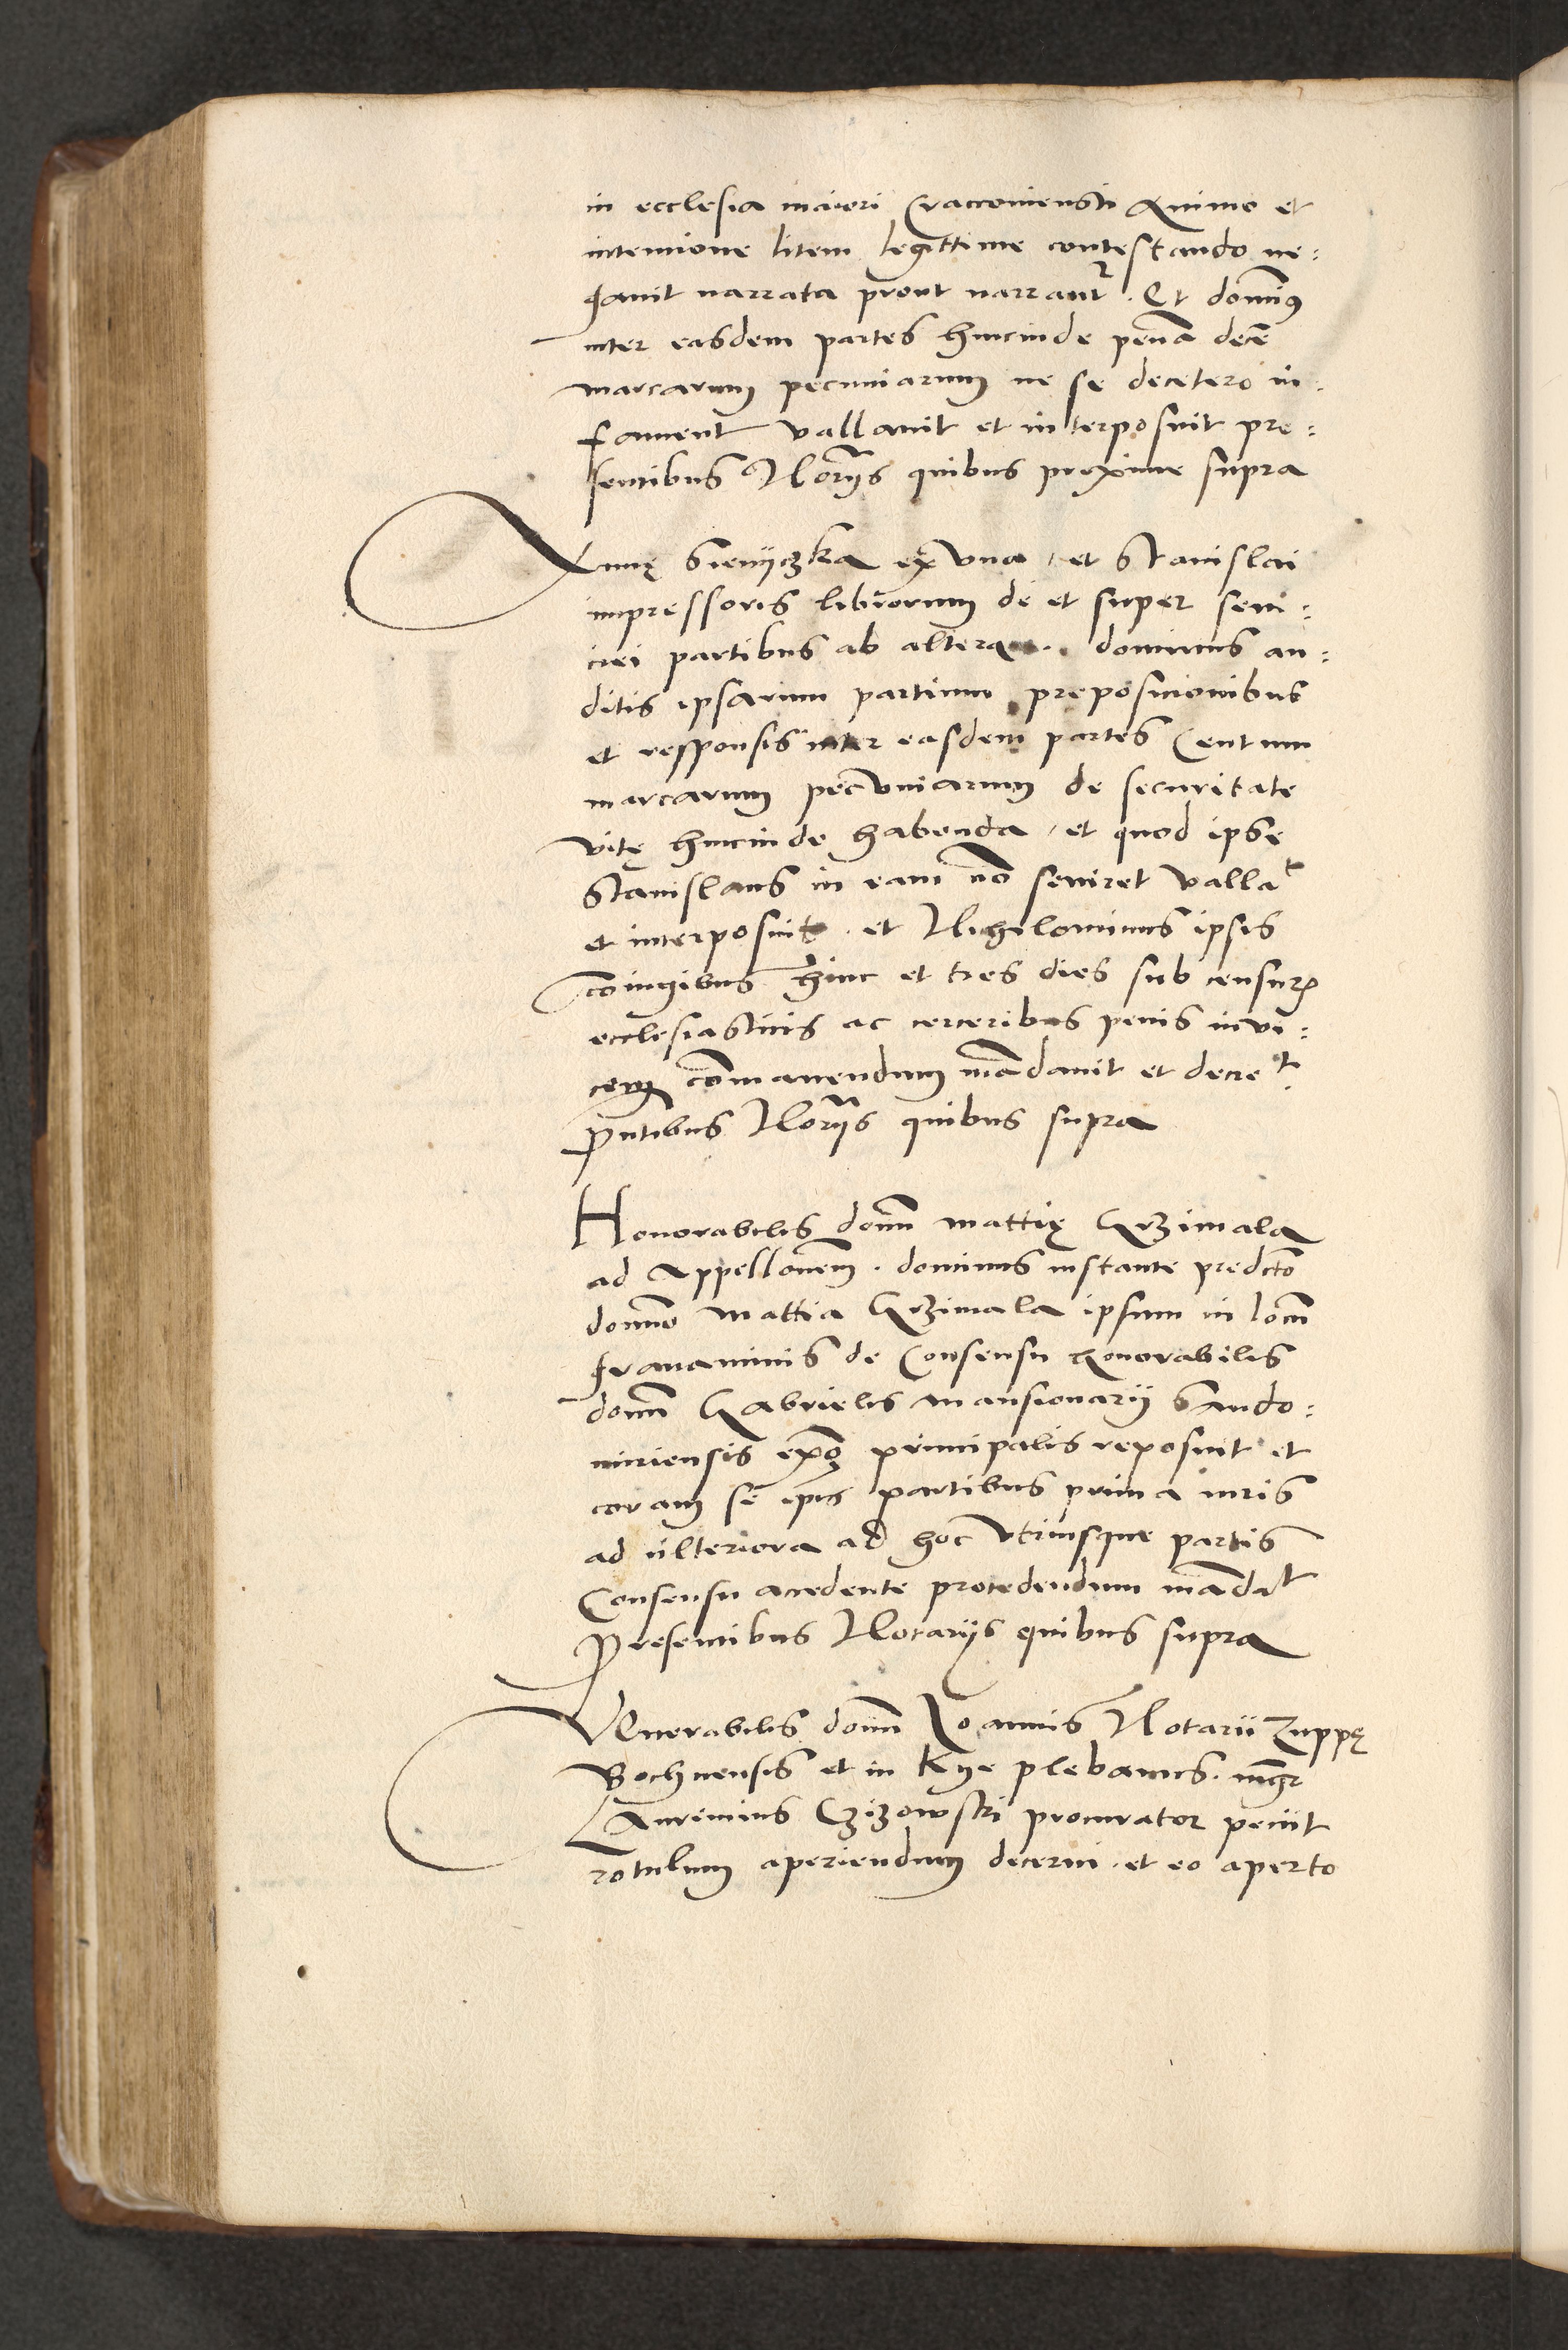 in ecclesia maiori Cracoviensi Animo et
intencione litem legittime contestando ne:
gavit narrata prout narrantr. Et domin9
inter easdem partes hincinde pena dece
marcarum pecuniarum ne se decetero in:
famient vallavit et interposuit pre:
sentibus Norijs quibus proxime supra
Annę Sienyczka ex una et Stanislai
impressoris librorum de et super sevi:
ciei partibus ab altera. dominus au:
ditis ipsarum partium preposicionibus
et responsis inter easdem partes Centum
marcarum pecuniarum de securitate
vitę hincinde habenda, et quod ipse
Stanislaus in eam no seviret vallat
et interposuit. et Nichilominus ipsis
coniugibus hinc et tres dies sub censuris
ecclesiasticis ac cerceribus penis invi:
cem comanendum madavit et decret
pntibus Norijs quibus supra
Honorabilis domi mattię Grzimala
ad Appellonem. dominus instante predcto
domno Mattia Grzimala ipsum in locum
gravaminis de Consensu honorabilis
domi Gabrielis Mansionarij Sando:
miriensis principalis reposuit et
coram se ipis partibus prima iuris
ad ulteriora ad hoc utriusque partis
Consensu accedente procedendum madat
Presentibus Notarijs quibus supra
Venerabilis domi Joannis Notarii Zuppę
Bochnensis et in Kye plebanus. mgr
Laurincius Czizowski procurator peciit
rotulum aperiendum decerni. et eo aperto